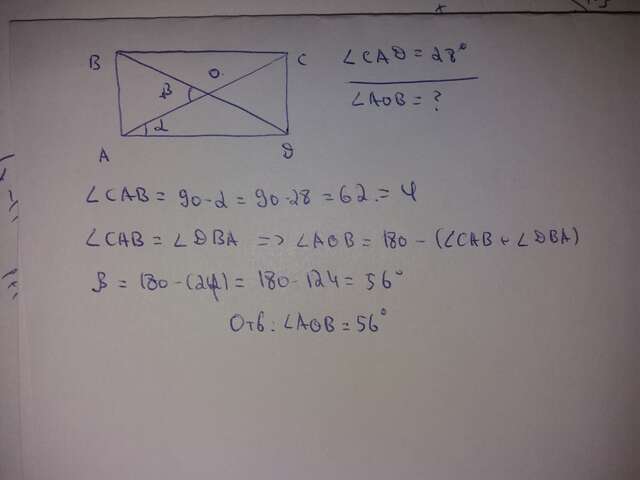 B C
O
β
α
A D
∠CAD = 28°
∠AOB = ?
∠CAB = 90-α = 90-28 = 62 = φ
∠CAB = ∠DBA => ∠AOB = 180 - (∠CAB + ∠DBA)
β = 180-(2φ) = 180-124 = 56°
Отв: ∠AOB = 56°